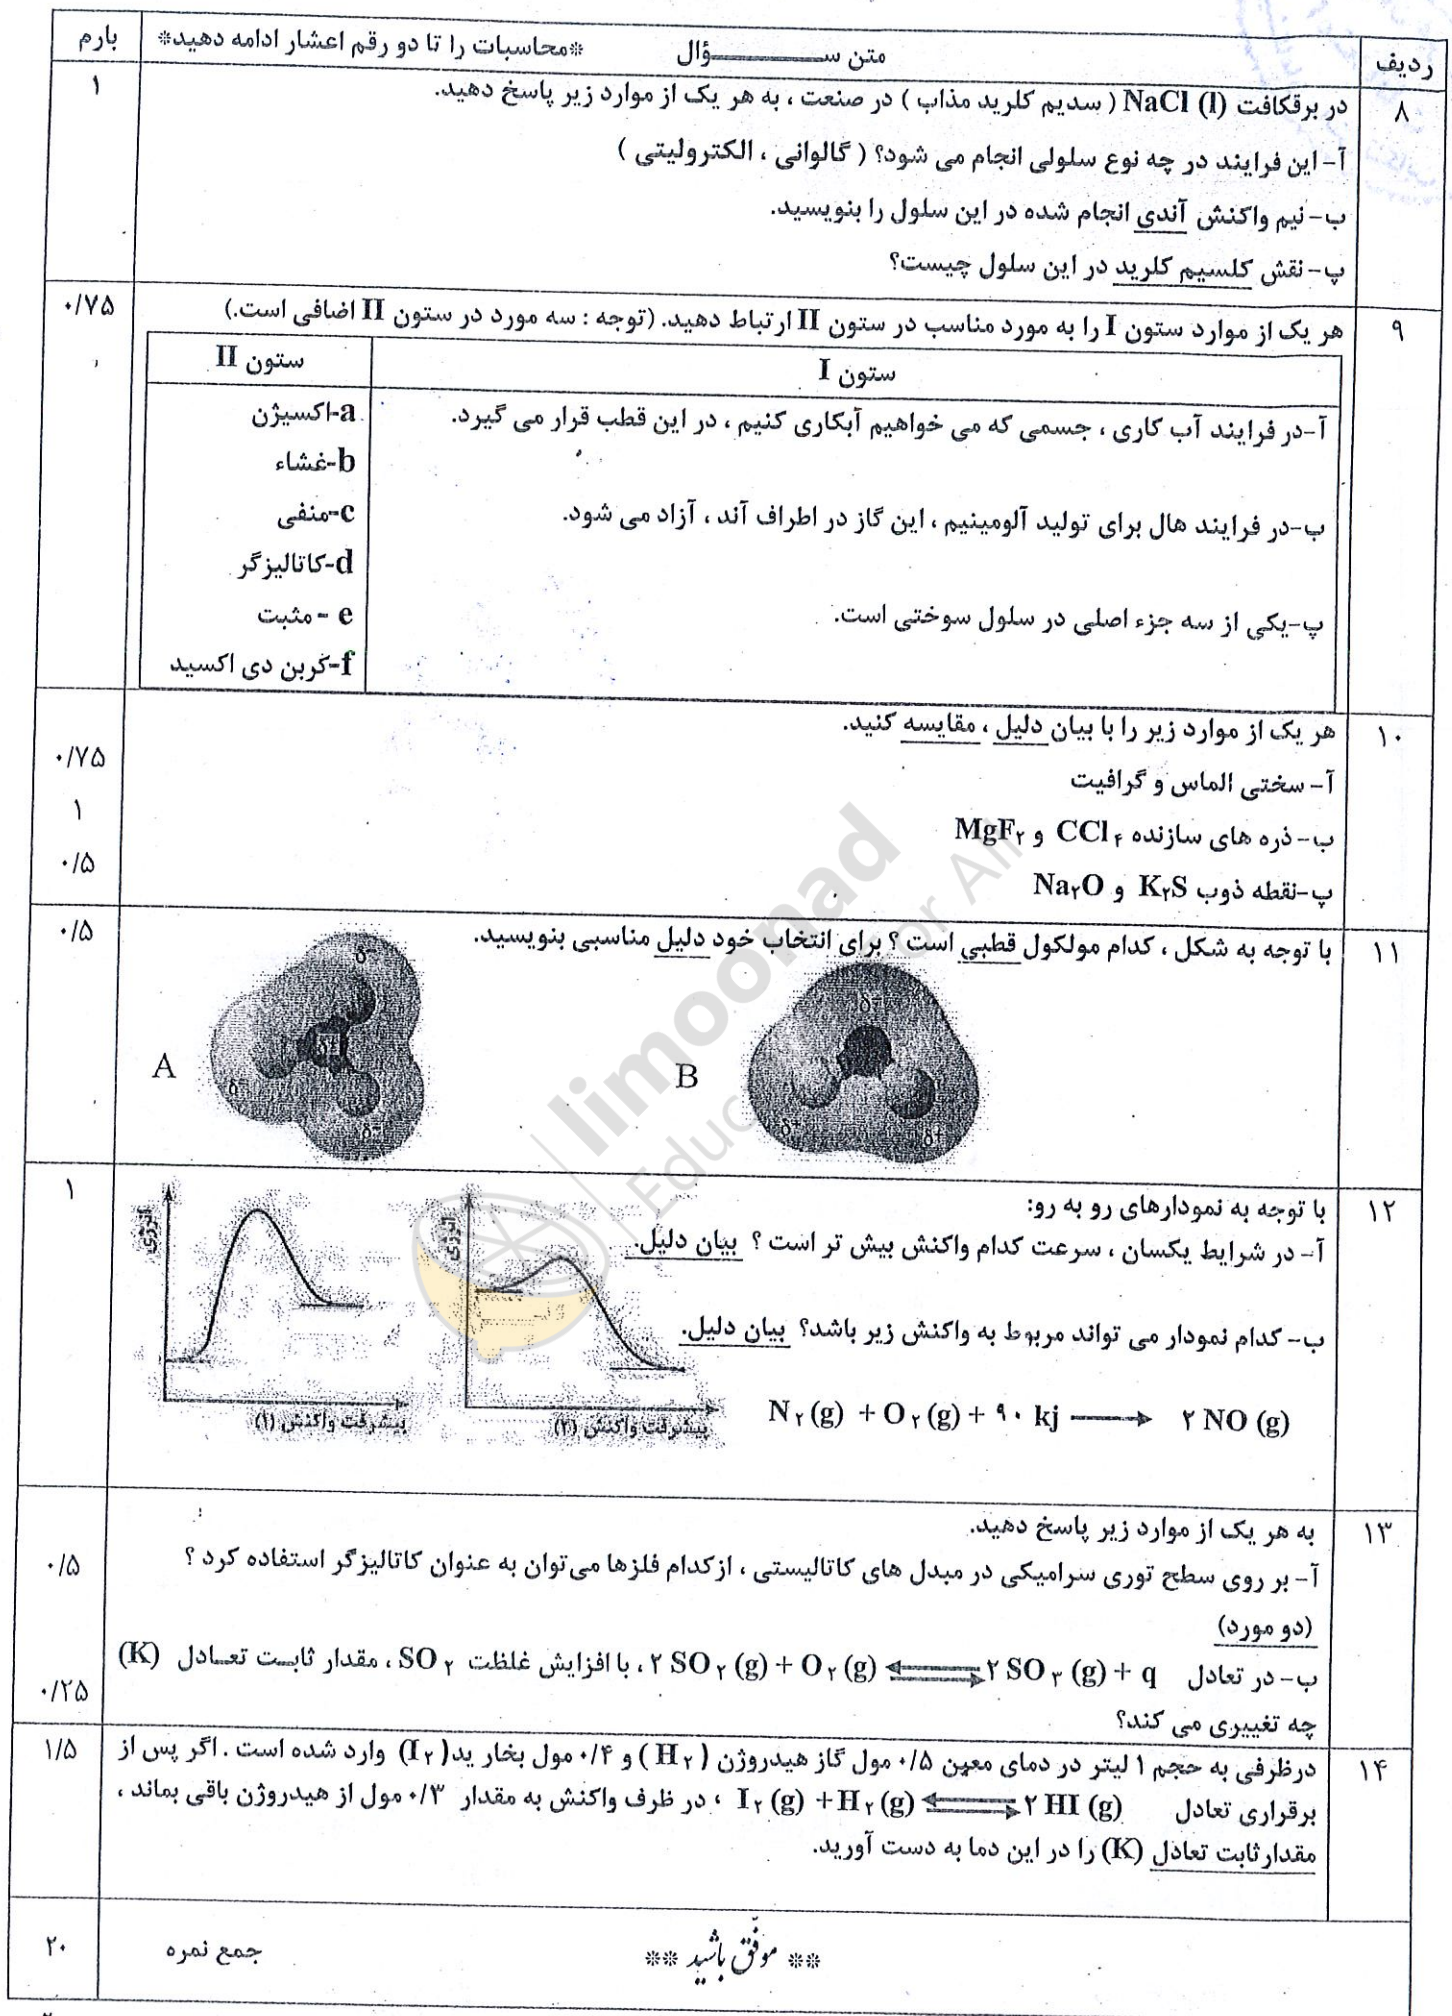 ردیف متن ســـــــــــؤال *محاسبات را تا دو رقم اعشار ادامه دهید* بارم
۸ در برقکافت NaCl (l) ( سدیم کلرید مذاب ) در صنعت ، به هر یک از موارد زیر پاسخ دهید. ۱
آ- این فرایند در چه نوع سلولی انجام می شود؟ ( گالوانی ، الکترولیتی )
ب- نیم واکنش آندی انجام شده در این سلول را بنویسید.
پ- نقش کلسیم کلرید در این سلول چیست؟
۹ هر یک از موارد ستون I را به مورد مناسب در ستون II ارتباط دهید. (توجه : سه مورد در ستون II اضافی است.) ۰/۷۵
ستون I ستون II
آ-در فرایند آب کاری ، جسمی که می خواهیم آبکاری کنیم ، در این قطب قرار می گیرد. a-اکسیژن
b-غشاء
ب-در فرایند هال برای تولید آلومینیم ، این گاز در اطراف آند ، آزاد می شود. c-منفی
d-کاتالیزگر
پ-یکی از سه جزء اصلی در سلول سوختی است. e - مثبت
f-کربن دی اکسید
۱۰ هر یک از موارد زیر را با بیان دلیل ، مقایسه کنید.
آ- سختی الماس و گرافیت ۰/۷۵
ب- ذره های سازنده CCl۴ و MgF۲ ۱
پ-نقطه ذوب K۲S و Na۲O ۰/۵
۱۱ با توجه به شکل ، کدام مولکول قطبی است ؟ برای انتخاب خود دلیل مناسبی بنویسید. ۰/۵
A δ- δ+ δ- δ-
B δ- δ+ δ+
۱۲ با توجه به نمودارهای رو به رو: ۱
آ- در شرایط یکسان ، سرعت کدام واکنش بیش تر است ؟ بیان دلیل.
ب- کدام نمودار می تواند مربوط به واکنش زیر باشد؟ بیان دلیل.
N۲(g) + O۲(g) + ۹۰ kj ⟶ ۲ NO (g)
انرژی
پیشرفت واکنش (۱)
انرژی
پیشرفت واکنش (۲)
۱۳ به هر یک از موارد زیر پاسخ دهید.
آ- بر روی سطح توری سرامیکی در مبدل های کاتالیستی ، ازکدام فلزها می‌توان به عنوان کاتالیزگر استفاده کرد ؟ ۰/۵
(دو مورد)
ب- در تعادل ۲ SO۲(g) + O۲(g) ⇌ ۲ SO۳(g) + q ، با افزایش غلظت SO۲ ، مقدار ثابت تعـادل (K)
چه تغییری می کند؟ ۰/۲۵
۱۴ درظرفی به حجم ۱ لیتر در دمای معین ۰/۵ مول گاز هیدروژن ( H۲ ) و ۰/۴ مول بخار ید( I۲ ) وارد شده است . اگر پس از ۱/۵
برقراری تعادل I۲(g) + H۲(g) ⇌ ۲ HI (g) ، در ظرف واکنش به مقدار ۰/۳ مول از هیدروژن باقی بماند ،
مقدارثابت تعادل (K) را در این دما به دست آورید.
** موفّق باشید ** جمع نمره ۲۰
limoonad
For All